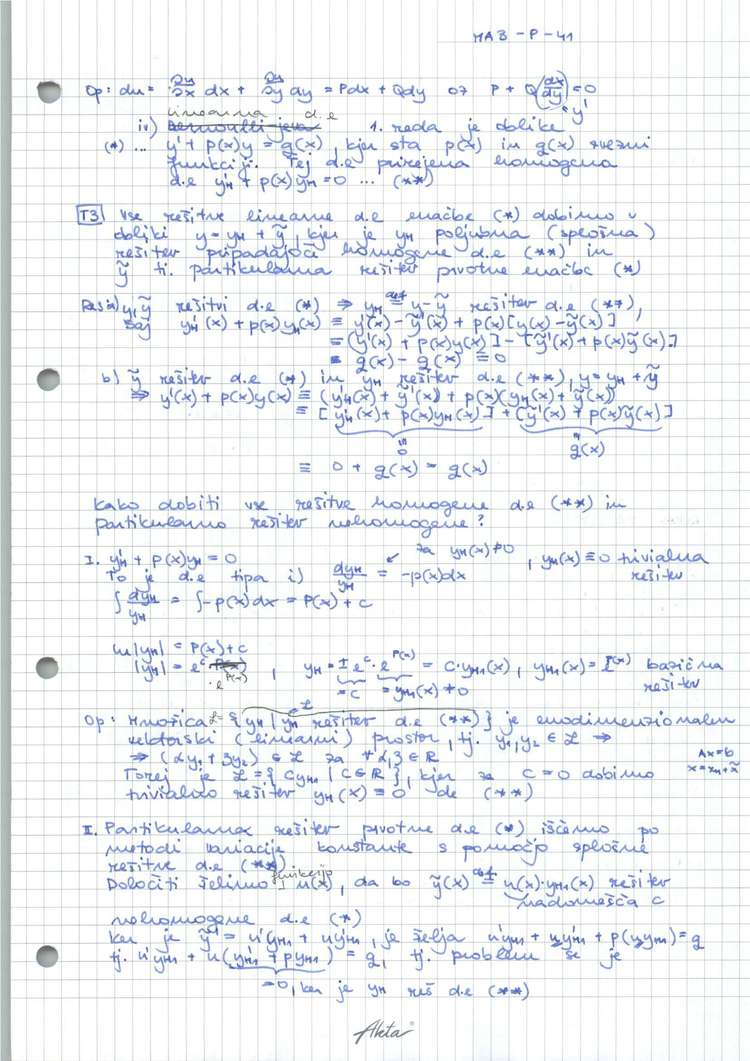 MA3-P-41
Op: du = ∂u/∂x dx + ∂u/∂y dy = Pdx + Qdy oz P + Q(dx/dy) = 0
y'
linearna d.e
iv) Bernoulli-jeva 1. reda je oblike
(*) ... y' + p(x)y = g(x), kjer sta p(x) in g(x) zvezni
funkciji. Tej d.e prirejena homogena
d.e y'H + p(x)yH = 0 ... (**)
T3 Vse rešitve linearne d.e enačbe (*) dobimo v
obliki y = yH + ỹ, kjer je yH poljubna (splošna)
rešitev pripadajoče homogene d.e (**) in
ỹ ti. partikularna rešitev prvotne enačbe (*)
a) y, ỹ rešitvi d.e (*) ⇒ yH def= y - ỹ rešitev d.e (**),
saj y'H(x) + p(x)yH(x) ≡ y'(x) - ỹ'(x) + p(x)[y(x) - ỹ(x)]
= [y'(x) + p(x)y(x)] - [ỹ'(x) + p(x)ỹ(x)]
= g(x) - g(x) ≡ 0
b) ỹ rešitev d.e (*) in yH rešitev d.e (**), y = yH + ỹ
⇒ y'(x) + p(x)y(x) ≡ (y'H(x) + ỹ'(x)) + p(x)(yH(x) + ỹ(x))
≡ [y'H(x) + p(x)yH(x)] + [ỹ'(x) + p(x)ỹ(x)]
0 g(x)
≡ 0 + g(x) = g(x)
Kako dobiti vse rešitve homogene d.e (**) in
partikularno rešitev nehomogene?
I. y'H + p(x)yH = 0 za yH(x) ≠ 0
To je d.e tipa i) dyH/yH = -p(x)dx , yH(x) ≡ 0 trivialna
rešitev
∫ dyH/yH = ∫-p(x)dx = P(x) + c
ln|yH| = P(x) + c
|yH| = e^c · e^P(x) , yH = ± e^c · e^P(x) = C·yH1(x), yH1(x) = e^P(x) bazična
= C = yH1(x) ≠ 0 rešitev
Op: Množica ℒ = {yH | yH rešitev d.e (**)} je enodimenzionalen
vektorski (linearni) prostor, tj. y1, y2 ∈ ℒ ⇒
⇒ (αy1 + βy2) ∈ ℒ za ∀ α, β ∈ ℝ
Ax = b
x = xH + x̃
Torej je ℒ = {CyH1 | C ∈ ℝ}, kjer za C = 0 dobimo
trivialno rešitev yH(x) ≡ 0 de (**)
II. Partikularna rešitev prvotne d.e (*) iščemo po
metodi variacije konstante s pomočjo splošne
rešitve d.e (**)
Določiti želimo funkcijo u(x), da bo ỹ(x) def= u(x)·yH1(x) rešitev
nadomešča C
nehomogene d.e (*)
ker je ỹ' = u'yH1 + uy'H1, je želja u'yH1 + uy'H1 + p(uyH1) = g
tj. u'yH1 + u(y'H1 + pyH1) = g, tj. problem se je
= 0, ker je yH reš d.e (**)
Akta